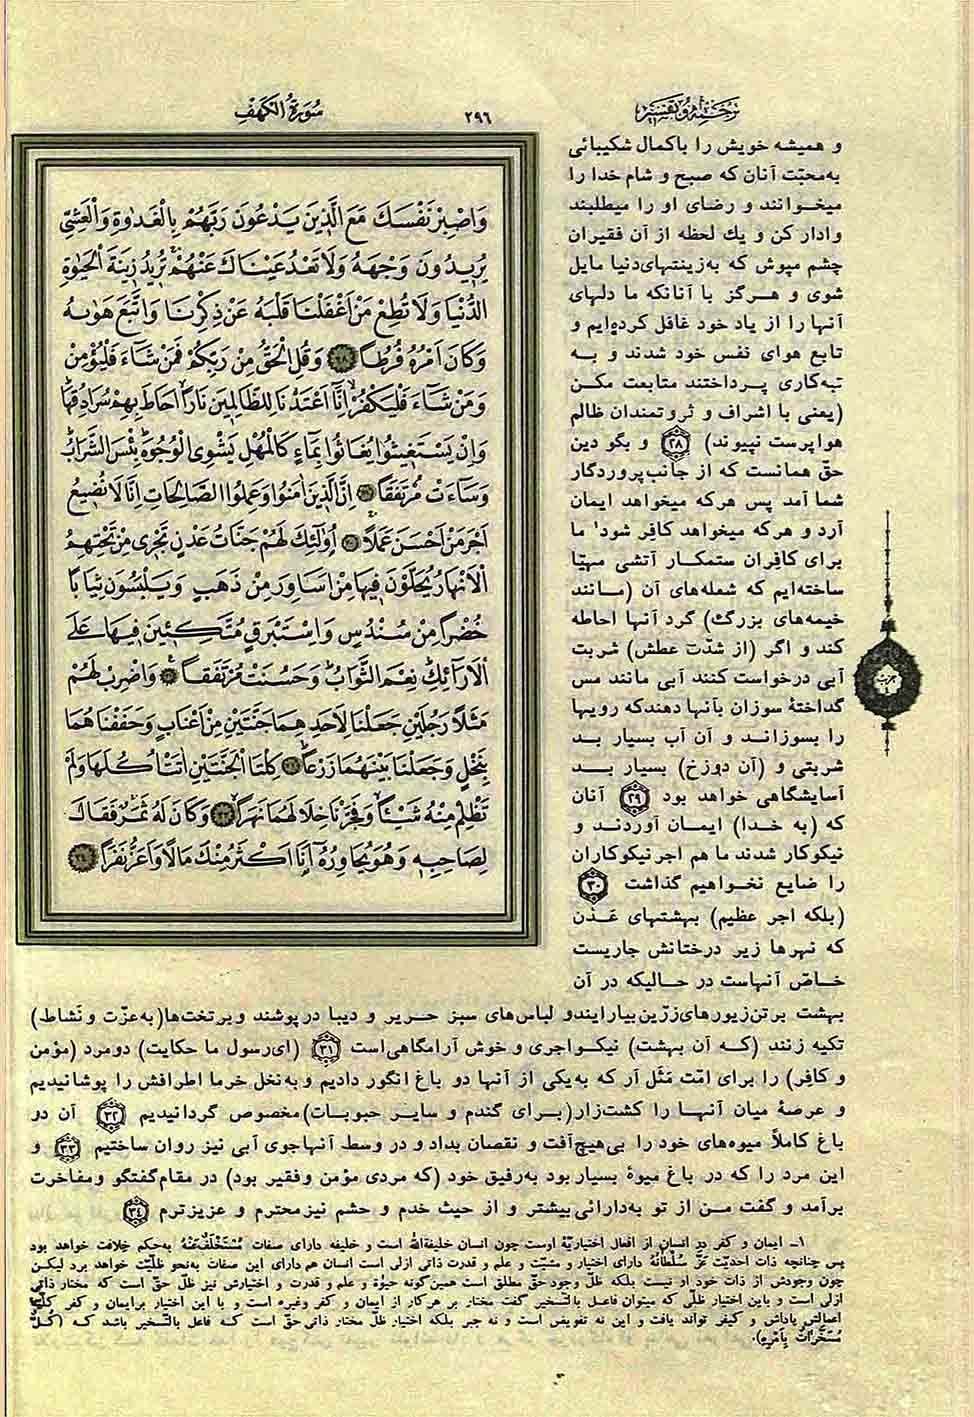 ترجمه و تفسیر
۲۹۶
سُورَةُ الْكَهْفِ
وَاصْبِرْ نَفْسَكَ مَعَ الَّذِينَ يَدْعُونَ رَبَّهُمْ بِالْغَدٰوةِ وَالْعَشِيِّ
يُرِيدُونَ وَجْهَهُ وَلَا تَعْدُ عَيْنَاكَ عَنْهُمْ تُرِيدُ زِينَةَ الْحَيٰوةِ
الدُّنْيَا وَلَا تُطِعْ مَنْ أَغْفَلْنَا قَلْبَهُ عَنْ ذِكْرِنَا وَاتَّبَعَ هَوٰيهُ
وَكَانَ أَمْرُهُ فُرُطًا ۲۸ وَقُلِ الْحَقُّ مِنْ رَبِّكُمْ فَمَنْ شَاءَ فَلْيُؤْمِنْ
وَمَنْ شَاءَ فَلْيَكْفُرْ إِنَّا أَعْتَدْنَا لِلظَّالِمِينَ نَارًا أَحَاطَ بِهِمْ سُرَادِقُهَا
وَإِنْ يَسْتَغِيثُوا يُغَاثُوا بِمَاءٍ كَالْمُهْلِ يَشْوِي الْوُجُوهَ بِئْسَ الشَّرَابُ
وَسَاءَتْ مُرْتَفَقًا ۲۹ إِنَّ الَّذِينَ اٰمَنُوا وَعَمِلُوا الصَّالِحَاتِ إِنَّا لَا نُضِيعُ
أَجْرَ مَنْ أَحْسَنَ عَمَلًا ۳۰ أُولٰئِكَ لَهُمْ جَنَّاتُ عَدْنٍ تَجْرِي مِنْ تَحْتِهِمُ
الْأَنْهَارُ يُحَلَّوْنَ فِيهَا مِنْ أَسَاوِرَ مِنْ ذَهَبٍ وَيَلْبَسُونَ ثِيَابًا
خُضْرًا مِنْ سُنْدُسٍ وَإِسْتَبْرَقٍ مُتَّكِئِينَ فِيهَا عَلَى
الْأَرَائِكِ نِعْمَ الثَّوَابُ وَحَسُنَتْ مُرْتَفَقًا ۳۱ وَاضْرِبْ لَهُمْ
مَثَلًا رَجُلَيْنِ جَعَلْنَا لِأَحَدِهِمَا جَنَّتَيْنِ مِنْ أَعْنَابٍ وَحَفَفْنَاهُمَا
بِنَخْلٍ وَجَعَلْنَا بَيْنَهُمَا زَرْعًا ۳۲ كِلْتَا الْجَنَّتَيْنِ اٰتَتْ أُكُلَهَا وَلَمْ
تَظْلِمْ مِنْهُ شَيْئًا وَفَجَّرْنَا خِلَالَهُمَا نَهَرًا ۳۳ وَكَانَ لَهُ ثَمَرٌ فَقَالَ
لِصَاحِبِهِ وَهُوَ يُحَاوِرُهُ أَنَا أَكْثَرُ مِنْكَ مَالًا وَأَعَزُّ نَفَرًا ۳۴
و همیشه خویش را باکمال شکیبائی
به‌محبّت آنان که صبح و شام خدا را
میخوانند و رضای او را میطلبند
وادار کن و یك لحظه از آن فقیران
چشم مپوش که به‌زینتهای‌دنیا مایل
شوی و هرگز با آنانکه ما دلهای
آنها را از یاد خود غافل کرده‌ایم و
تابع هوای نفس خود شدند و به
تبه‌کاری پرداختند متابعت مکن
(یعنی با اشراف و ثروتمندان ظالم
هواپرست نپیوند) ۲۸ و بگو دین
حق همانست که از جانب‌پروردگار
شما آمد پس هرکه میخواهد ایمان
آرد و هرکه میخواهد کافر شود۱ ما
برای کافران ستمکار آتشی مهیّا
ساخته‌ایم که شعله‌های آن (مانند
خیمه‌های بزرگ) گرد آنها احاطه
کند و اگر (از شدّت عطش) شربت
آبی درخواست کنند آبی مانند مس
گداختهٔ سوزان بآنها دهندکه رویها
را بسوزاند و آن آب بسیار بد
شربتی و (آن دوزخ) بسیار بد
آسایشگاهی خواهد بود ۲۹ آنان
که (به خدا) ایمان آوردند و
نیکوکار شدند ما هم اجر نیکوکاران
را ضایع نخواهیم گذاشت ۳۰
(بلکه اجر عظیم) بهشتهای عَدْن
که نهرها زیر درختانش جاریست
خاصّ آنهاست در حالیکه در آن
حزب
بهشت برتن‌زیورهای‌زرّین‌بیارایندو لباس‌های سبز حریر و دیبا درپوشند وبرتخت‌ها(به‌عزّت و نشاط)
تکیه زنند (که آن بهشت) نیکواجری و خوش آرامگاهی‌است ۳۱ (ای‌رسول ما حکایت) دومرد (مؤمن
و کافر) را برای امّت مَثَل آر که به‌یکی از آنها دو باغ انگور دادیم و به‌نخل خرما اطرافش را پوشانیدیم
و عرصهٔ میان آنها را کشت‌زار(برای گندم و سایر حبوبات)مخصوص گردانیدیم ۳۲ آن دو
باغ کاملاً میوه‌های خود را بی‌هیچ‌آفت و نقصان بداد و در وسط آنهاجوی آبی نیز روان ساختیم ۳۳ و
این مرد را که در باغ میوهٔ بسیار بود به‌رفیق خود (که مردی مؤمن وفقیر بود) در مقام‌گفتگو ومفاخرت
برآمد و گفت من از تو به‌دارائی‌بیشتر و از حیث خدم و حشم نیزمحترم و عزیزترم ۳۴
۱ـ ایمان و کفر در انسان از افعال اختیاریّهٔ اوست چون انسان خلیفةالله است و خلیفه دارای صفات مُسْتَخْلَفٌ‌عَنْهُ به‌حکم خِلافت خواهد بود
پس چنانچه ذات احدیّت عَزَّ سُلْطَانُهُ دارای اختیار و مشیّت و علم و قدرت ذاتی ازلی است انسان هم‌دارای این صفات به‌نحو ظلّیّت خواهد برد لیکن
چون وجودش از ذات خود او نیست بلکه ظلّ وجود حقّ مطلق است همین‌گونه حیوٰة و علم و قدرت و اختیارش نیز ظلّ حقّ است که مختار ذاتی
ازلی است و باین اختیار ظلّی که میتوان فاعل بالتّسخیر گفت مختار بر هرکار از ایمان و کفر وغیره است و با این اختیار برایمان و کفر کلیّهٔ
اعمالش پاداش و کیفر تواند یافت و این نه تفویض است و نه جبر بلکه اختیار ظلّ مختار ذاتی‌حقّ است که فاعل بالتّسخیر باشد که (کُلٌّ
مُسَخَّرَاتٌ بِأَمْرِهِ).